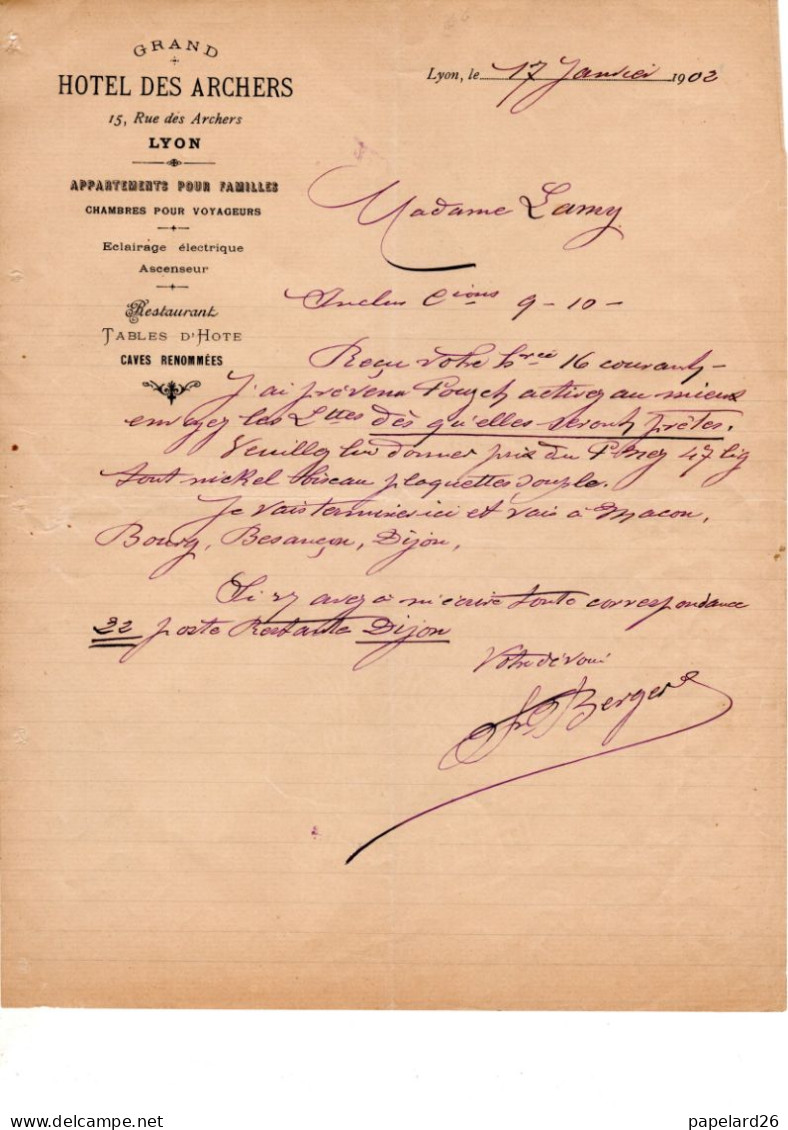 GRAND
HOTEL DES ARCHERS
15, Rue des Archers
LYON
APPARTEMENTS POUR FAMILLES
CHAMBRES POUR VOYAGEURS
Eclairage électrique
Ascenseur
Restaurant
TABLES D'HOTE
CAVES RENOMMÉES
Lyon, le 17 Janvier 1902
Madame Lamy
Inclus Cions 9-10-
Reçu votre hrée 16 courant-
J'ai prévenu Pouzet activez au mieux
envoyez les Lttes dès qu'elles seront prêtes.
Veuillez lui donner prix du 47 lig
tout nickel biseau plaquettes souple.
Je vais terminer ici et vais à Macon,
Bourg, Besançon, Dijon,
Si avez à m'écrire toute correspondance
22 poste Restante Dijon
Votre dévoué
Berger
papelard26